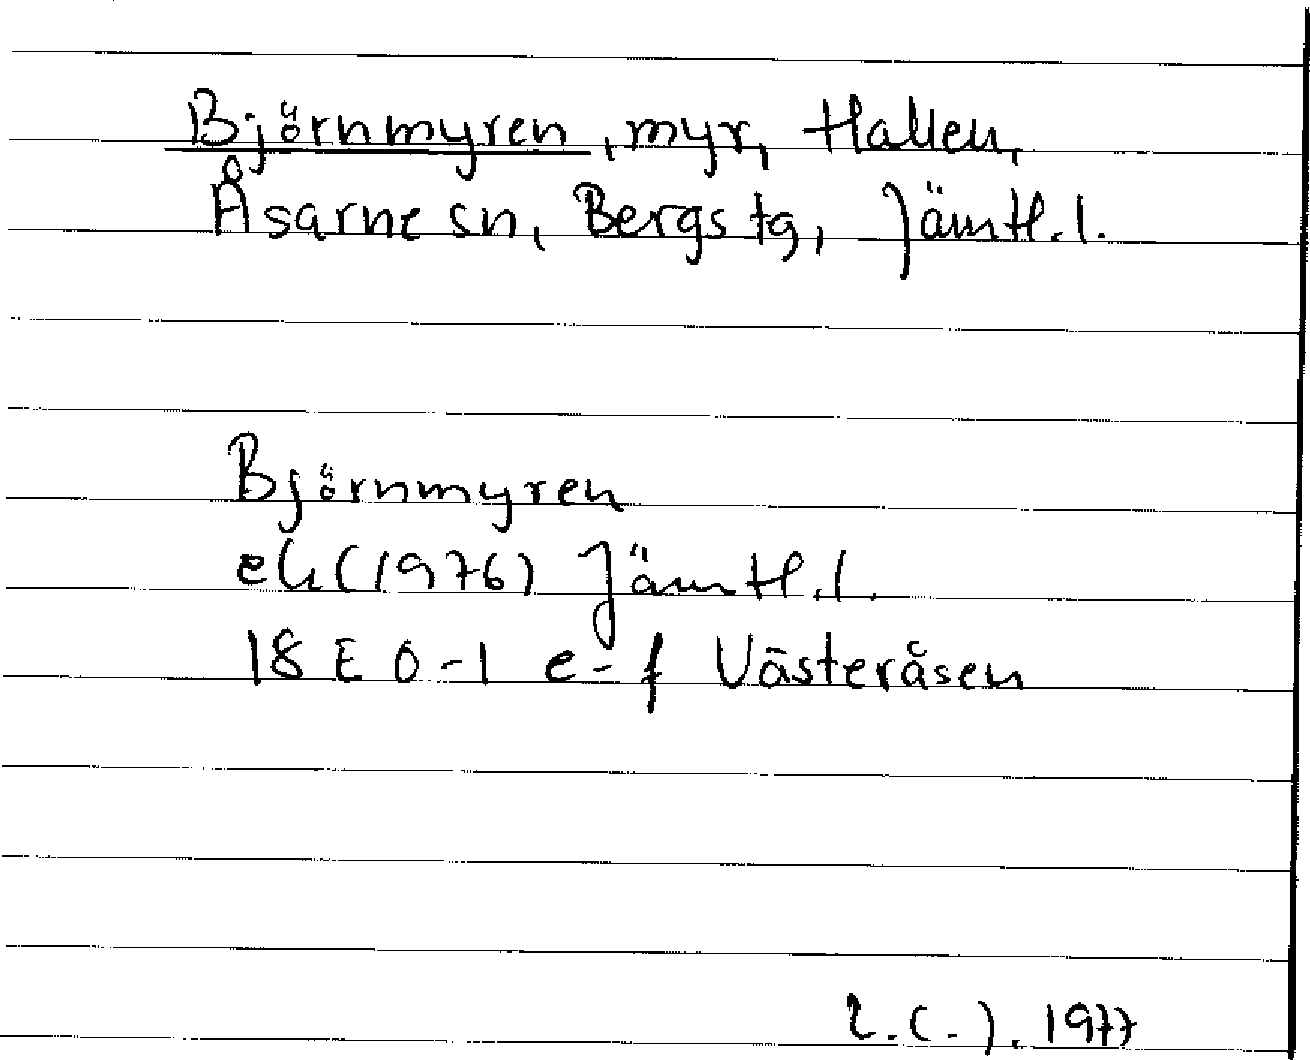 Björnmyren, myr, Hallen,
Åsarne sn, Bergs tg, Jämtl. l.
Björnmyren
ek (1976) Jämtl. l.
18 E 0-1 e-f Västeråsen
1977